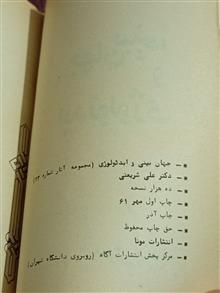 جهان بینی و ایدئولوژی (مجموعه آثار شماره ۲۳)
دکتر علی شریعتی
ده هزار نسخه
چاپ اول مهر ۶۱
چاپ آذر
حق چاپ محفوظ
انتشارات مونا
مرکز پخش انتشارات آگاه (روبروی دانشگاه تهران)